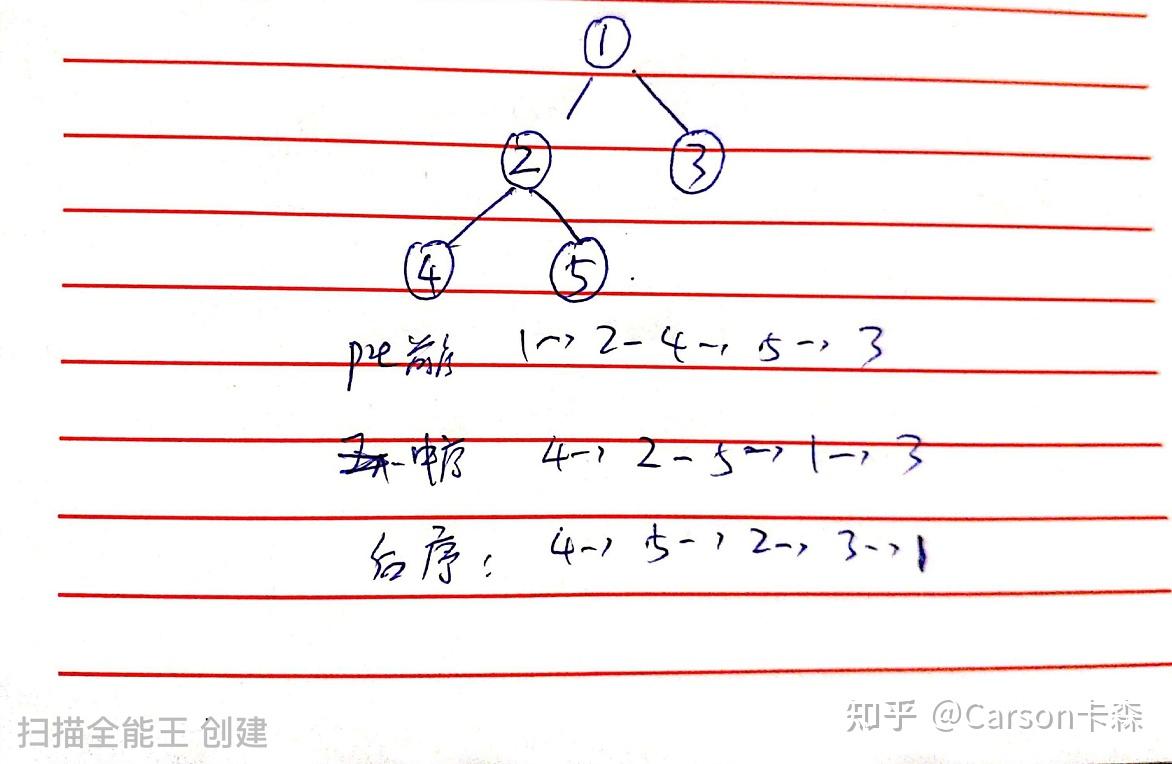 1
2 3
4 5
前序 1→2-4→5→3
中序 4→2-5→1→3
后序: 4→5→2→3→1
扫描全能王 创建
知乎 @Carson卡森